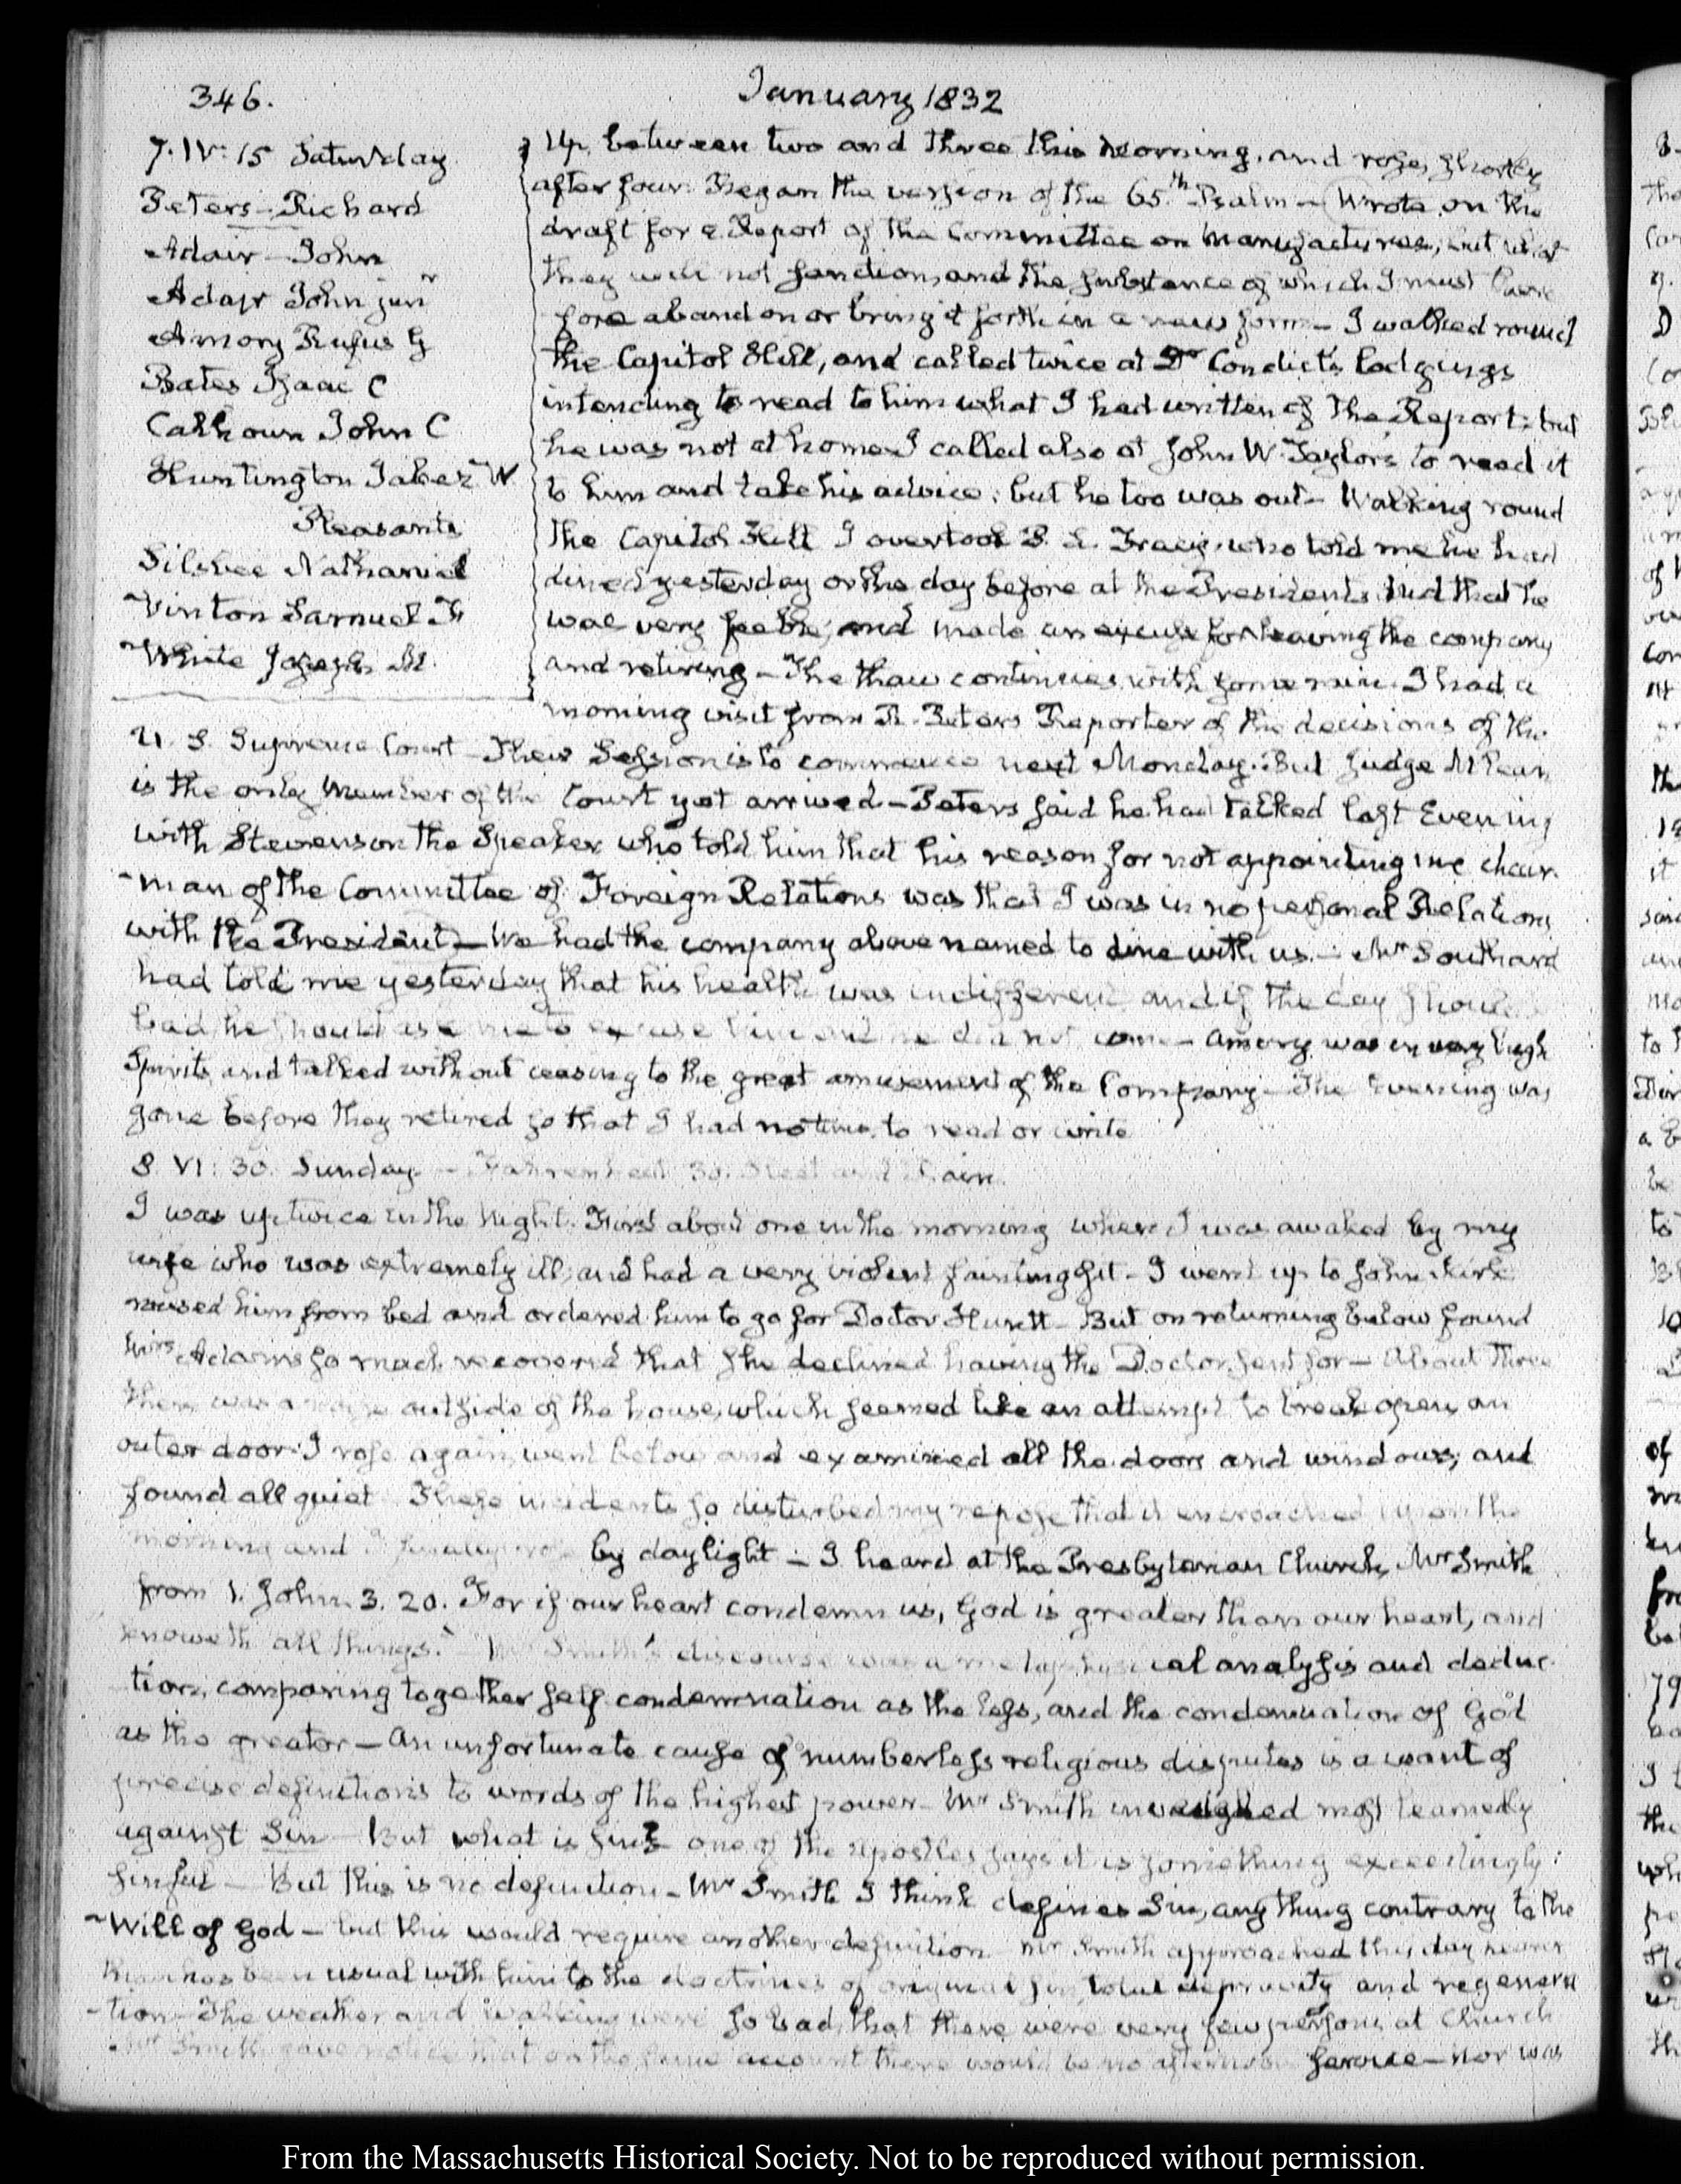 346.
January 1832
7. IV: 15 Saturday.
Peters - Richard
Adair - John
Adair John junr
Amory Rufus G
Bates Isaac C
Calhoun John C
Huntington Jabez W
Pleasants
Silsbee Nathaniel
Vinton Samuel F
White Joseph M.
Up between two and three this morning, and rose shortly
after four. Began the version of the 65.th Psalm — Wrote on the
draft for a Report of the Committee on Manufactures, but what
they will not sanction, and the substance of which I must there
fore abandon or bring it forth in a new form — I walked round
the Capitol Hill, and called twice at Dr Condict's lodgings
intending to read to him what I had written of the Report; but
he was not at home. I called also at John W. Taylor's to read it
to him and take his advice; but he too was out — Walking round
the Capitol Hill I overtook Tracy, who told me he had
dined yesterday or the day before at the President's and that he
was very feeble, and made an excuse for leaving the company
and retiring — The thaw continues with some rain. I had a
morning visit from R. Peters Reporter of the decisions of the
U. S. Supreme Court — Their Session is to commence next Monday. But Judge McLean
is the only Member of the Court yet arrived — Peters said he had talked last Evening
with Stevenson the Speaker who told him that his reason for not appointing me chair-
-man of the Committee of Foreign Relations was that I was in no personal Relations
with the President — We had the company above named to dine with us. — Mr Southard
had told me yesterday that his health was indifferent and if the day should
bad, he should ask me to excuse him and he did not come — Amory was in very high
Spirits and talked without ceasing to the great amusement of the Company — The Evening was
gone before they retired so that I had no time to read or write
8. VI: 30. Sunday — Fahrenheit 30. Sleet and Rain.
I was up twice in the Night. First about one in the morning when I was awaked by my
wife who was extremely ill, and had a very violent fainting fit — I went up to John Kirk
roused him from bed and ordered him to go for Doctor Huntt — But on returning below found
Mrs Adams so much recovered that she declined having the Doctor sent for — About three
there was a noise outside of the house, which seemed like an attempt to break open an
outer door. I rose again, went below and examined all the doors and windows; and
found all quiet. These incidents so disturbed my repose that it encroached upon the
morning and I finally rose by daylight — I heard at the Presbyterian Church, Mr Smith
from 1. John. 3. 20. For if our heart condemn us, God is greater than our heart, and
knoweth all things." Mr Smith's discourse was a metaphysical analysis and deduc-
tion, comparing together self condemnation as the less, and the condemnation of God
as the greater — An unfortunate cause of numberless religious disputes is a want of
precise definitions to words of the highest power — Mr Smith inveighed most learnedly
against Sin — But what is sin? one of the apostles says it is something exceedingly
sinful — But this is no definition — Mr Smith I think defines Sin, any thing contrary to the
Will of God — but this would require another definition. Mr Smith approached this day nearer
than has been usual with him to the doctrines of original sin, total depravity and regenera
-tion — The weather and walking were so bad, that there were very few persons at Church
Mr Smith gave notice that on the same account there would be no afternoon service — nor was